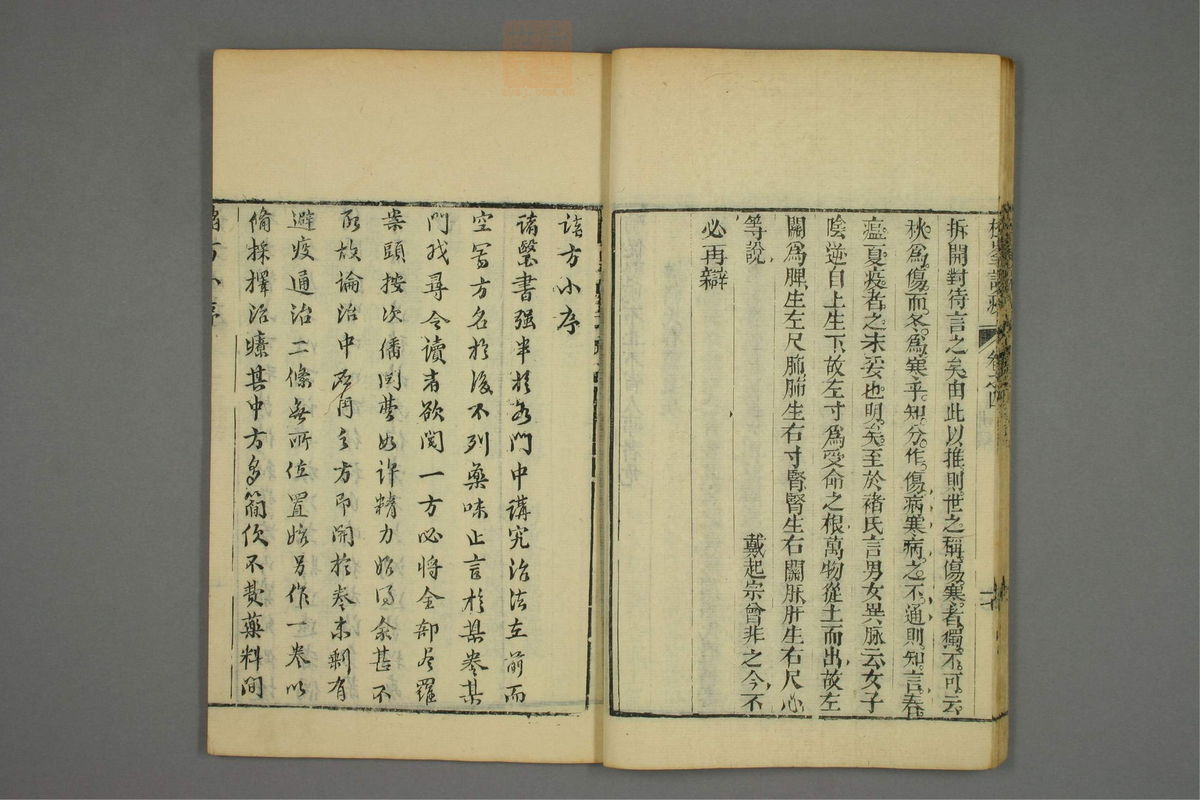 拆開對待言之矣由此以推則世之稱傷寒者獨不可云
秋爲傷而冬爲寒乎知分作傷病寒病之不通則知言春
瘟夏疫者之未妥也明矣至於褚氏言男女異脉云女子
陰逆自上生下故左寸爲受命之根萬物從土而出故左
關爲脾生左尺肺肺生右寸腎腎生右關肝肝生右尺心
等說戴起宗曾非之今不
必再辯
諸方小序
諸醫書强半於各門中講究治法在前而
空寫方名於後不列藥味止言於某卷某
門找尋令讀者欲閱一方必將全部盡羅
案頭按次繙閱費如許精力始得余甚不
取故論治中所用之方即開於卷末剩有
避疫通治二條無所位置始另作一卷以
備採擇治療其中方多簡便不費藥料間